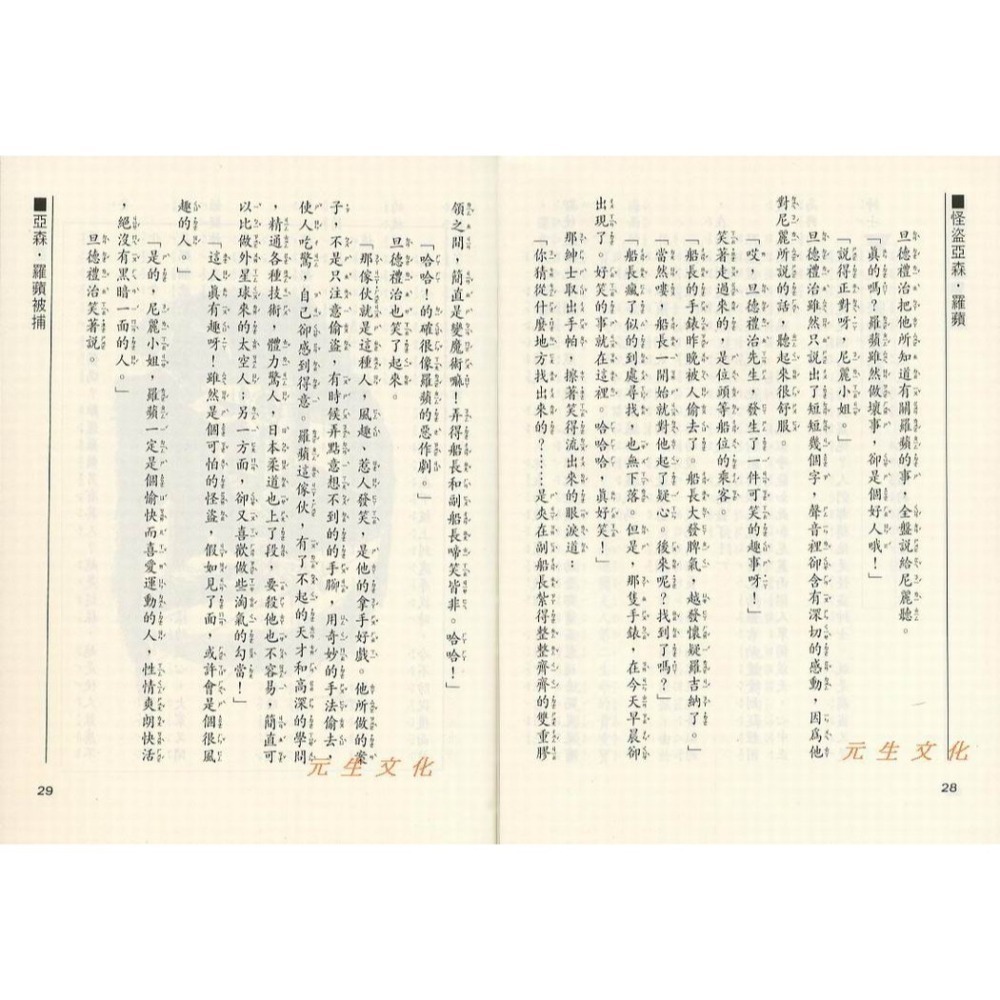 ■怪盜亞森・羅蘋
旦德禮治把他所知道有關羅蘋的事，全盤説給尼麗聽。
「真的嗎？羅蘋雖然做壞事，卻是個好人哦！」
「説得正對呀，尼麗小姐。」
旦德禮治雖然只説出了短短幾個字，聲音裡卻含有深切的感動，因爲他
對尼麗所説的話，聽起來很舒服。
「哎，旦德禮治先生，發生了一件可笑的趣事呀！」
笑著走過來的，是位頭等船位的乘客。
「船長的手錶昨晚被人偷去了。船長大發脾氣，越發懷疑羅吉納了。」
「當然嘍，船長一開始就對他起了疑心。後來呢？找到了嗎？」
「船長瘋了似的到處尋找，也無下落。但是，那隻手錶，在今天早晨卻
出現了。好笑的事就在這裡。哈哈哈，真好笑！」
那紳士取出手帕，擦著笑得流出來的眼淚道：
「你猜從什麼地方找出來的？……是夾在副船長紮得整整齊齊的雙重膠
28
元生文化
領之間，簡直是變魔術嘛！弄得船長和副船長啼笑皆非。哈哈！」
「哈哈！的確很像羅蘋的惡作劇。」
旦德禮治也笑了起來。
「那傢伙就是這種人，風趣、惹人發笑，是他的拿手好戲。他所做的案
子，不是只注意偷盜，有時候弄點意想不到的的手腳，用奇妙的手法偷去，
使人吃驚，自己卻感到得意。羅蘋這傢伙，有了不起的天才和高深的學問
，精通各種技術，體力驚人，日本柔道也上了段，要殺他也不容易，簡直可
以比做外星球來的太空人；另一方面，卻又喜歡做些淘氣的勾當！」
「這人真有趣呀！雖然是個可怕的怪盜，假如見了面，或許會是個很風
趣的人。」
「是的，尼麗小姐，羅蘋一定是個愉快而喜愛運動的人，性情爽朗快活
，絕沒有黑暗一面的人。」
旦德禮治笑著説。
■亞森・羅蘋被捕
29
元生文化